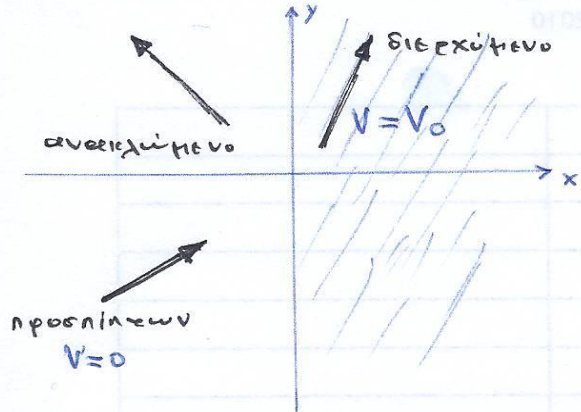 y
διερχόμενο
V = V₀
ανακλώμενο
x
προσπίπτων
V = 0